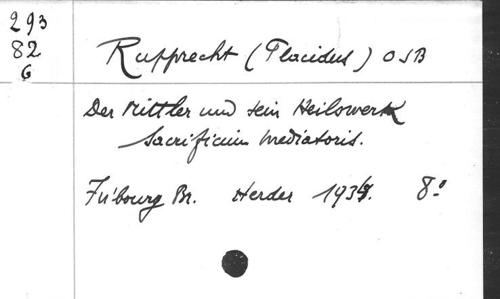 293
82
G
Rupprecht (Placidus) OSB
Der Mittler und sein Heilswerk
Sacrificium Mediatoris.
Fribourg Br. Herder 1934. 8°